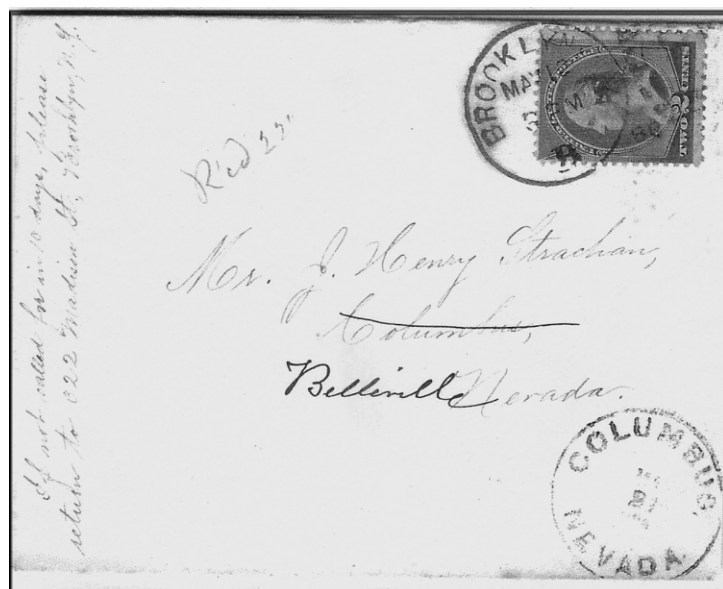 If not called for in 10 days, please
return to 622 Madison St., Brooklyn, N.Y.
BROOKLYN
MAY
POSTAGE
TWO 2 CENTS
Rc'd 22.
Mr. J. Henry Strachan,
Columbus,
Belleville Nevada.
COLUMBUS,
21
NEVADA.